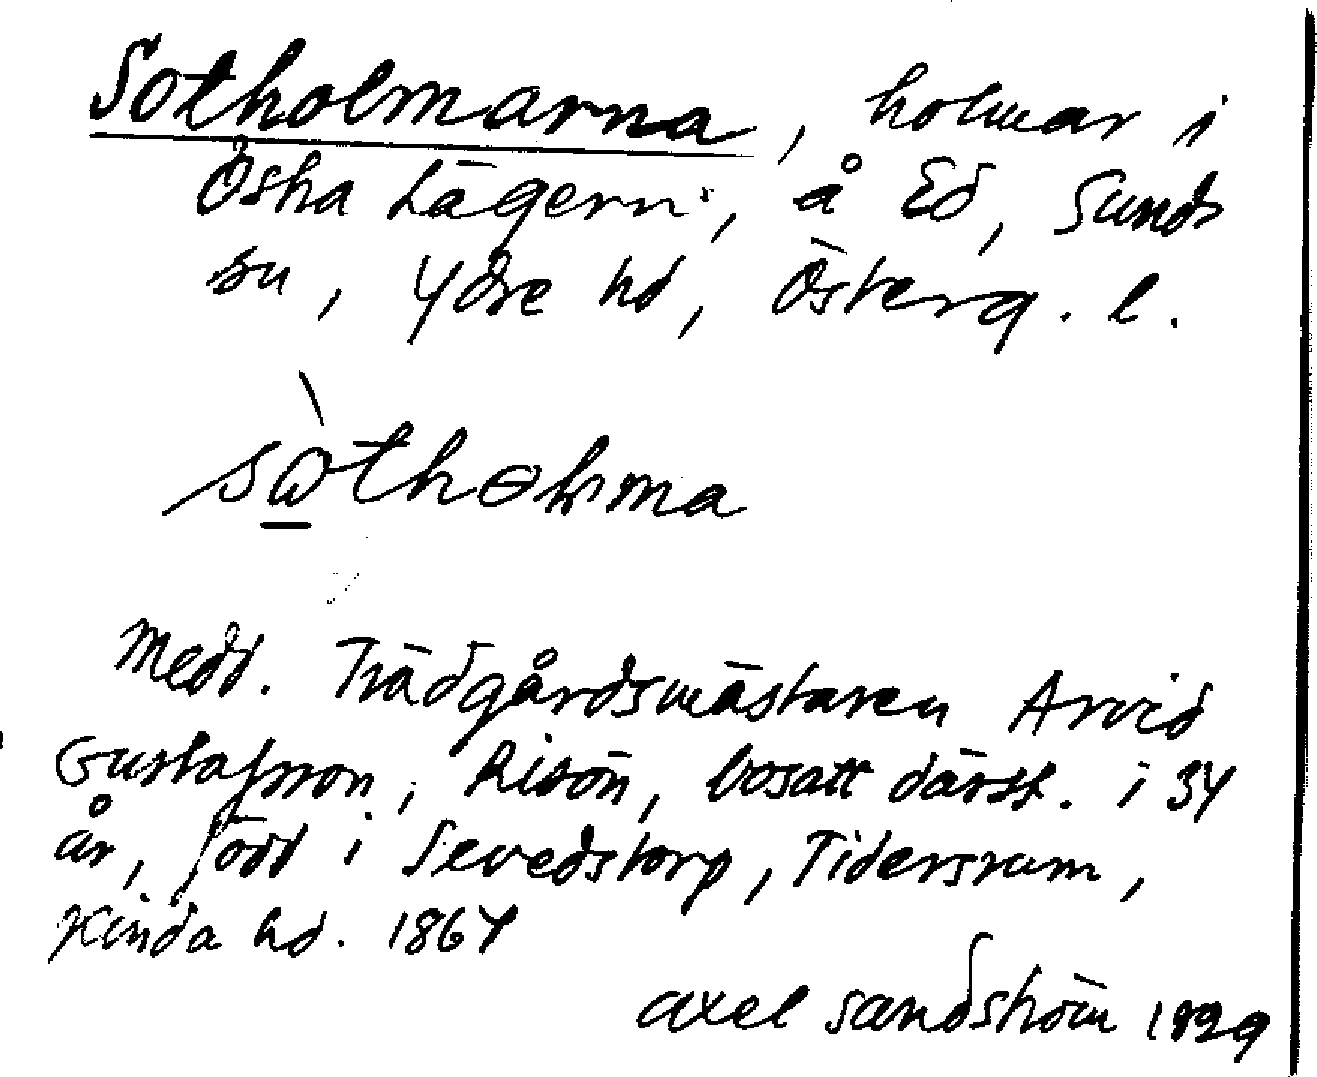 Sotholmarna, holmar i
Östra Lägern, å Ed, Sunds
sn, Ydre hd, Österg. l.
sòtholma
Medd. Trädgårdsmästaren Arvid
Gustafsson, Risön, bosatt därst. i 34
år, född i Sevedstorp, Tidersrum,
Kinda hd. 1864
Axel Sandström 1929